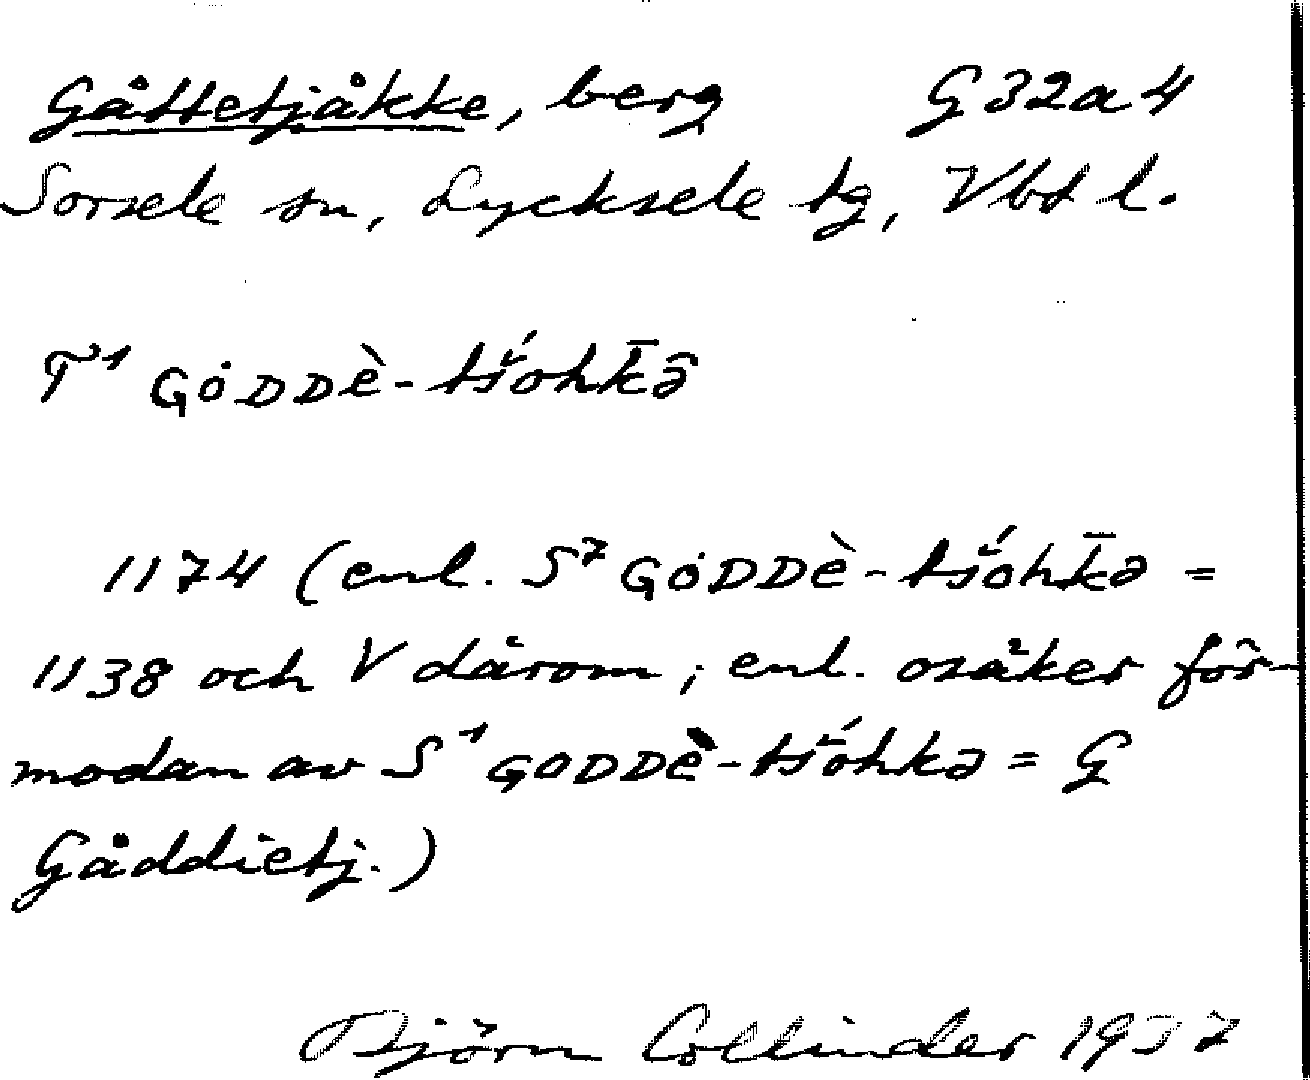 Gåttetjåkke, berg G 32 a 4
Sorsele sn, Lycksele tg, Vbt l.
T¹ GȯDDÈ-tš́ohk̄ə̑
1174 (enl. S⁷ GȯDDÈ-tš́ȯhk̄ə =
1138 och V därom; enl. osäker för-
modan av S¹ GODDÈ-tš́ȯhkə = G
Gåddietj.)
Björn Collinder 1937